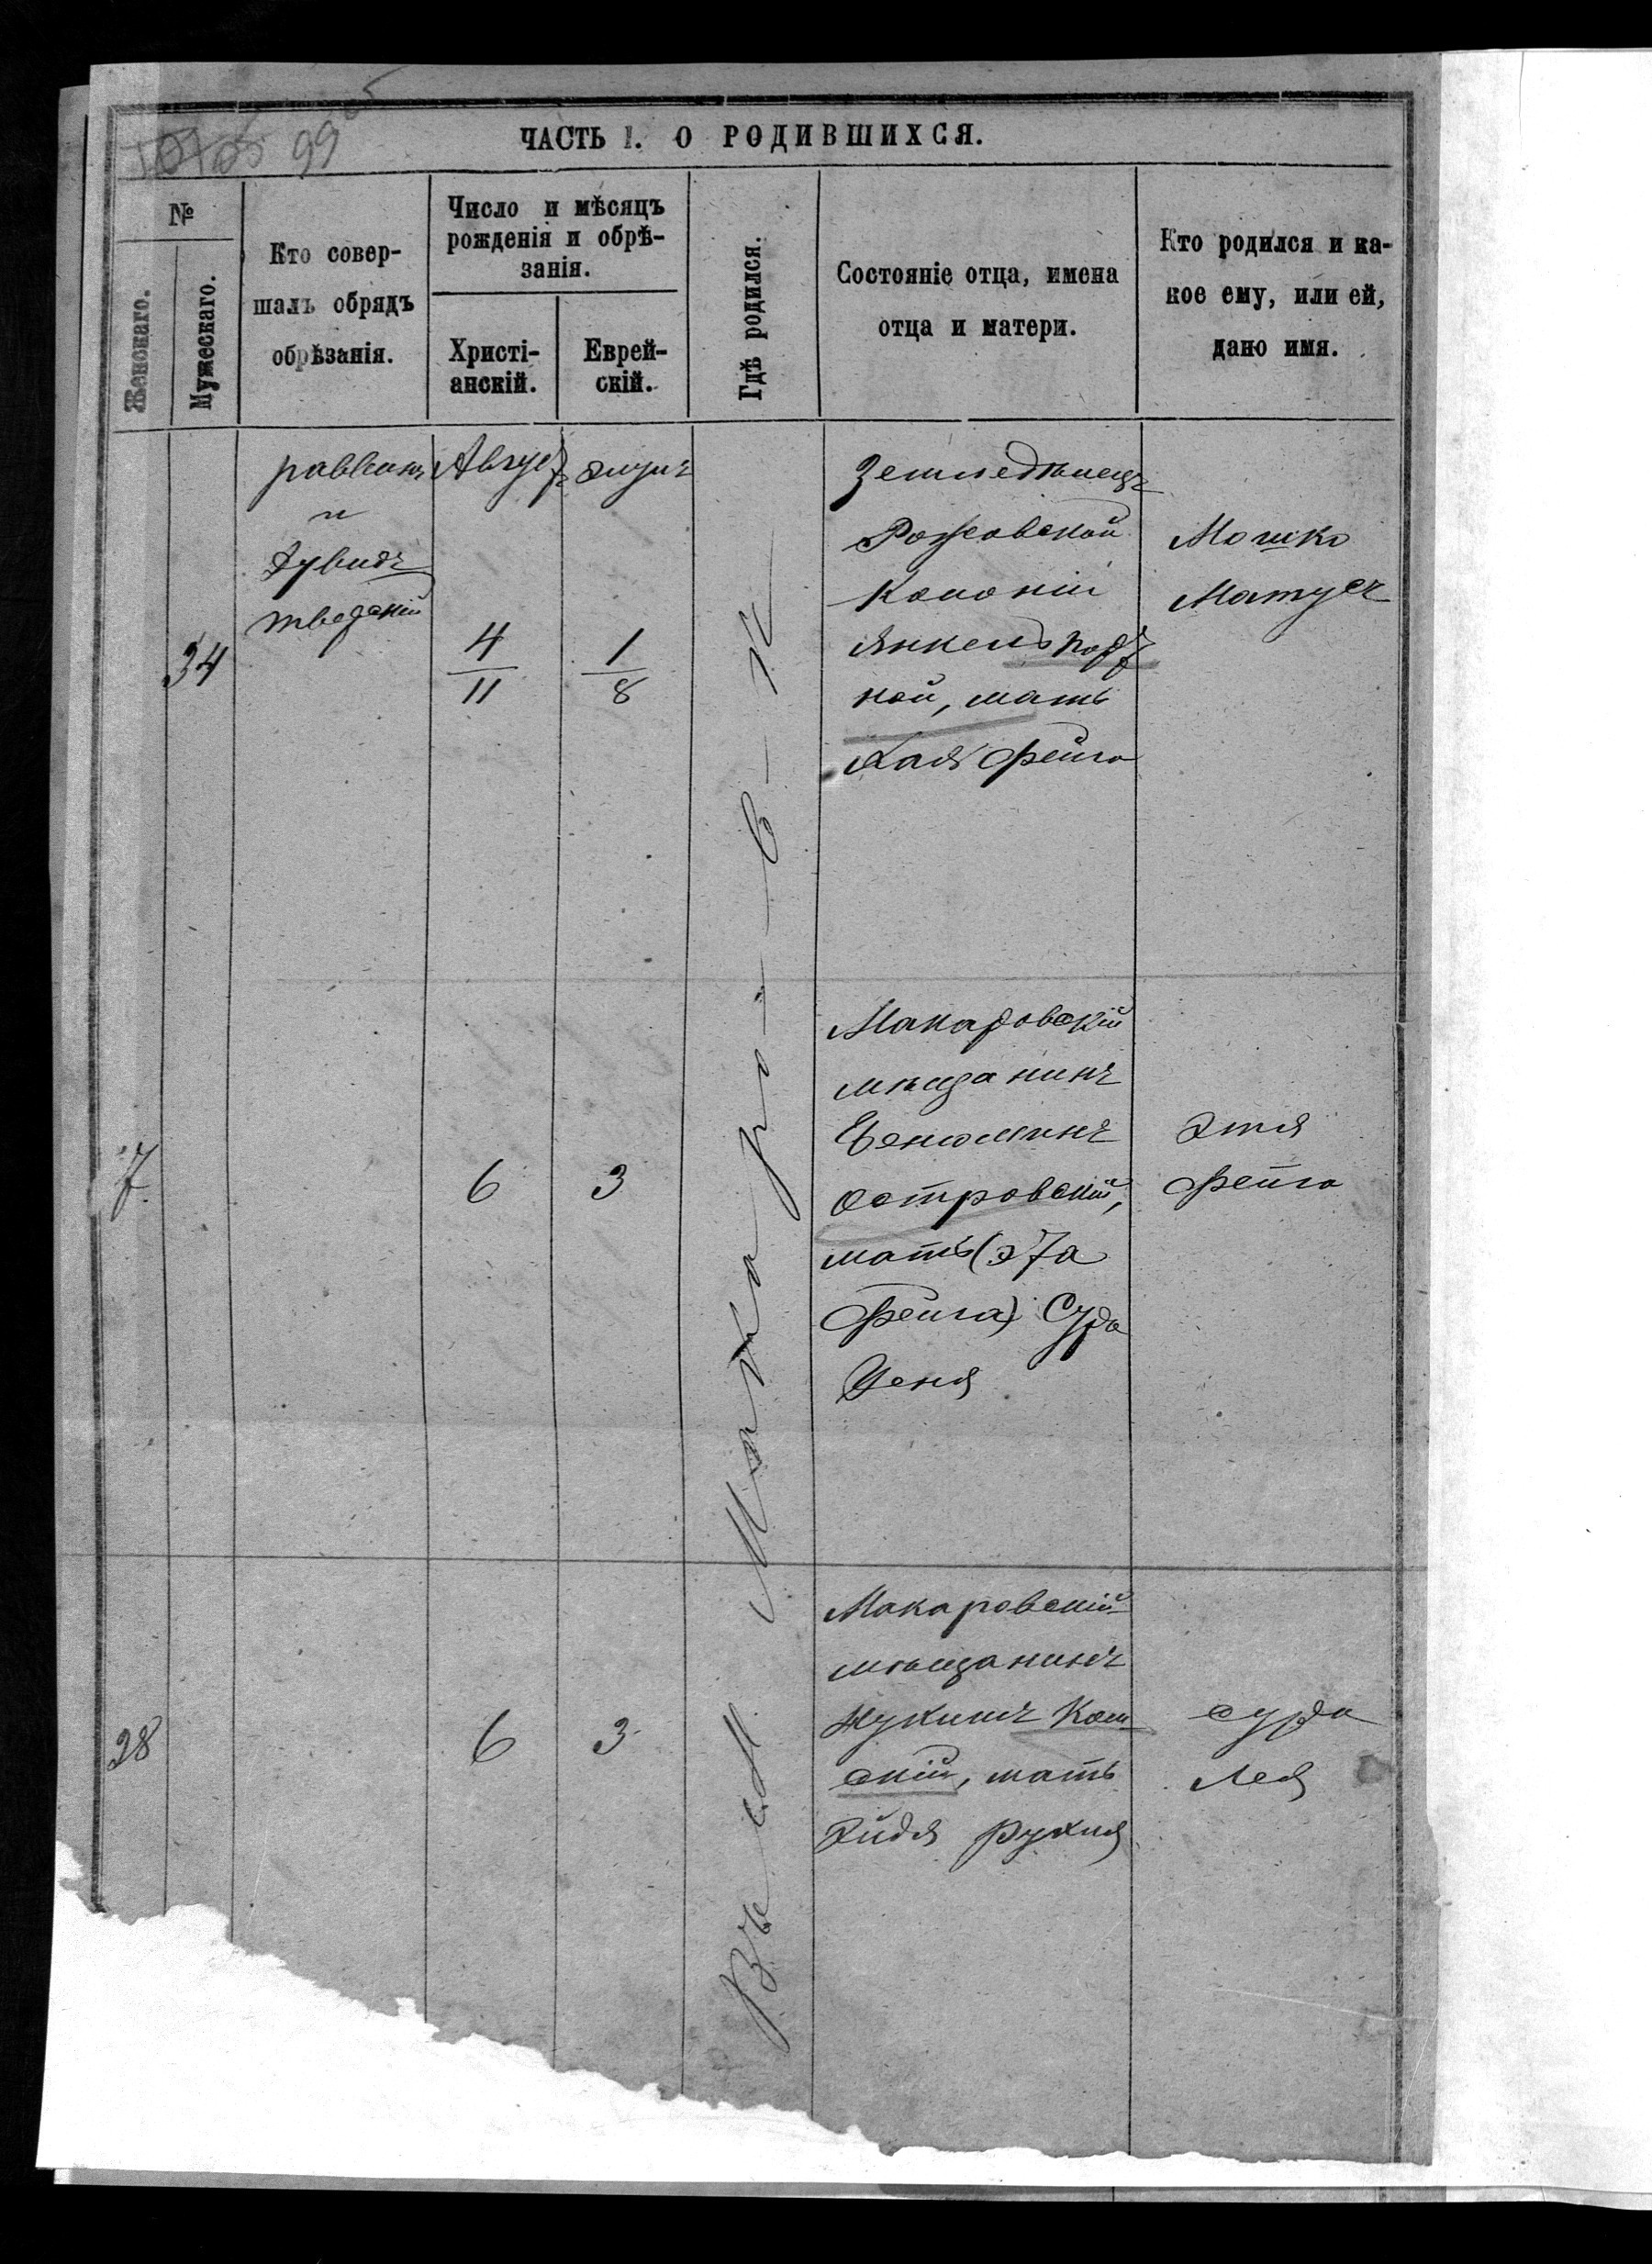 99
ЧАСТЬ I. О РОДИВШИХСЯ.
№
Женскаго.
Мужескаго.
Кто совер-
шалъ обрядъ
обрѣзанія.
Число и мѣсяцъ
рожденія и обрѣ-
занія.
Христі-
анскій.
Еврей-
скій.
Гдѣ родился.
Состояніе отца, имена
отца и матери.
Кто родился и ка-
кое ему, или ей,
дано имя.
34
раввинъ
и
Дувидъ
Август
4
11
элулъ
1
8
Земледѣлецъ
Рожовской
Колоніи
Янкель Порт
ной, мать
Хая Фейга
Мошко
Матусъ
Въ м. Макаровѣ
7
6
3
Макаровскій
мѣщанинъ
Беніоминъ
Островскій,
мать (Эта
Фейга) Сура
Ценя
Этя
Фейга
28
6
3
Макаровскій
мѣщанинъ
Нухимъ Кан
скій, мать
Эйдя Рухля
Сура
Лея